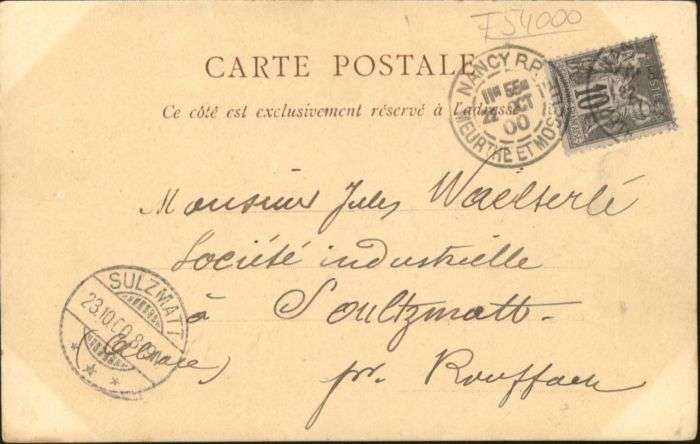 F54000
CARTE POSTALE
Ce côté est exclusivement réservé à l'adresse
NANCY R.P.
22 OCT
00
MEURTHE ET MOSE
10
Monsieur Jules Waelterlé
Société industrielle
à Soultzmatt
(Alsace)
pr. Rouffach
SULZMATT
23.10.00.8-9V